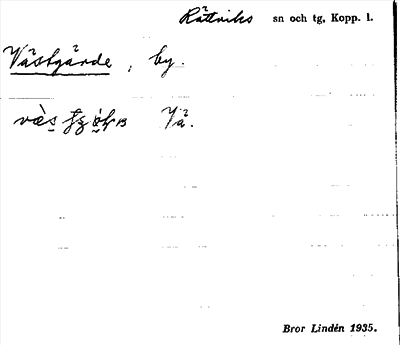 Rättviks sn och tg, Kopp. l.
Västgärde, by.
Vä.
Bror Lindén 1935.